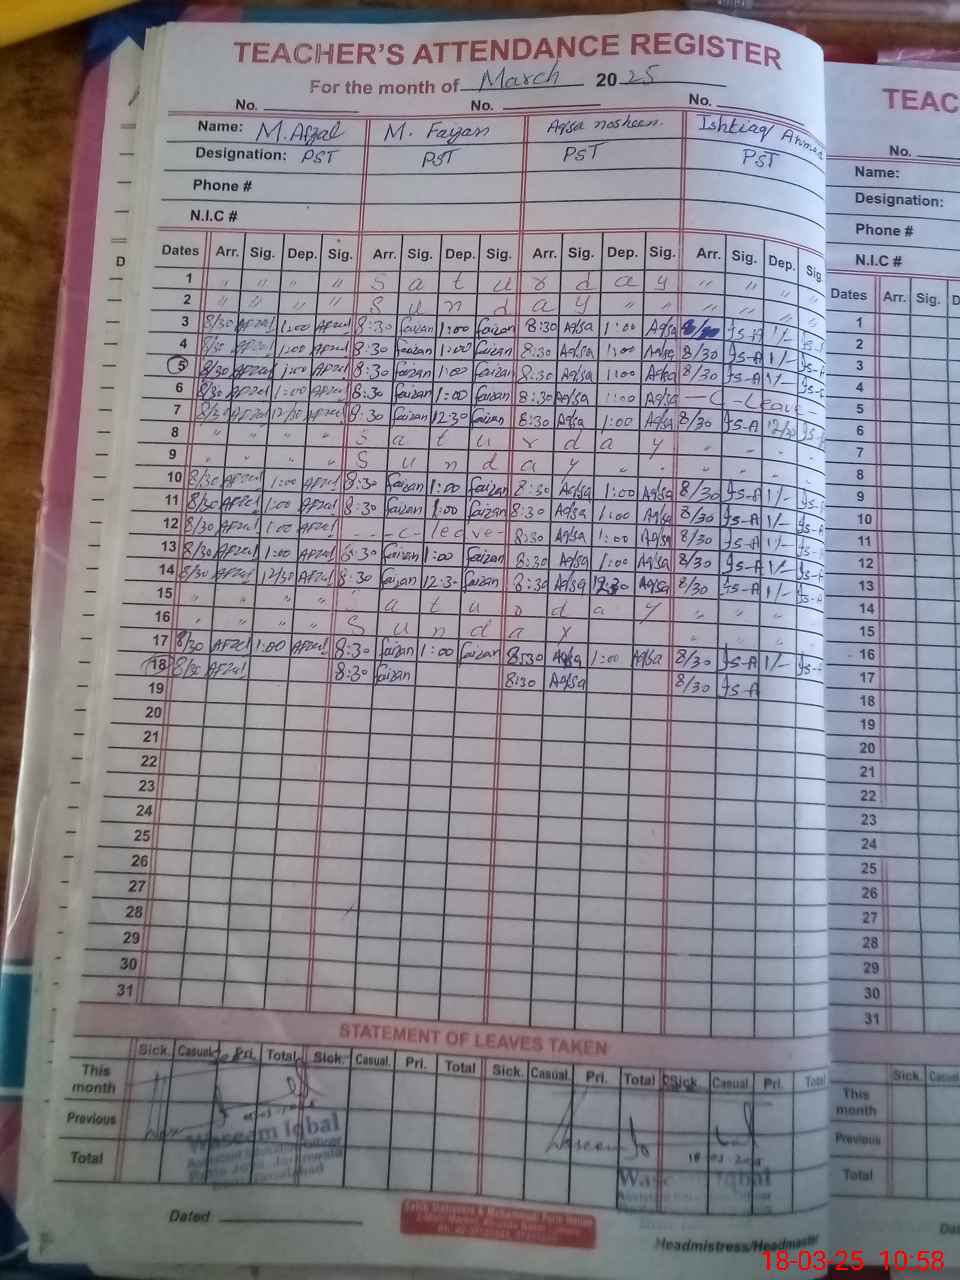 TEACHER'S ATTENDANCE REGISTER
For the month of March 2025
No. No. No.
Name: M. Afzal M. Faizan Aqsa nosheen. Ishtiaq Ahmed
Designation: PST PST PST PST
Phone #
N.I.C #
Dates Arr. Sig. Dep. Sig. Arr. Sig. Dep. Sig. Arr. Sig. Dep. Sig. Arr. Sig. Dep. Sig.
1 " " " " S a t u r d a y " " " "
2 " " " " S u n d a y " " " " " "
3 8/30 Afzal 1:00 Afzal 8:30 faizan 1:00 faizan 8:30 Aqsa 1:00 Aqsa 8/30 Is-A 1/- Is-A
4 8/30 Afzal 1:00 Afzal 8:30 faizan 1:00 faizan 8:30 Aqsa 1:00 Aqsa 8/30 Is-A 1/- Is-A
5 8/30 Afzal 1:00 Afzal 8:30 faizan 1:00 faizan 8:30 Aqsa 1:00 Aqsa 8/30 Is-A 1/- Is-A
6 8/30 Afzal 1:00 Afzal 8:30 faizan 1:00 faizan 8:30 Aqsa 1:00 Aqsa - C - Leave -
7 Afzal 12/30 Afzal 8:30 faizan 12:30 faizan 8:30 Aqsa 1:00 Aqsa 8/30 Is-A 12/30 Is-A
8 " " " " S a t u r d a y " " " "
9 " " " " S u n d a y " " " " " "
10 8/30 Afzal 1:00 Afzal 8:30 faizan 1:00 faizan 8:30 Aqsa 1:00 Aqsa 8/30 Is-A 1/- Is-A
11 8/30 Afzal 1:00 Afzal 8:30 faizan 1:00 faizan 8:30 Aqsa 1:00 Aqsa 8/30 Is-A 1/- Is-A
12 8/30 Afzal 1:00 Afzal - - c - leave - 8:30 Aqsa 1:00 Aqsa 8/30 Is-A 1/- Is-A
13 8/30 Afzal 1:00 Afzal 8:30 faizan 1:00 faizan 8:30 Aqsa 1:00 Aqsa 8/30 Is-A 1/- Is-A
14 8/30 Afzal 12/30 Afzal 8:30 faizan 12:30 faizan 8:30 Aqsa 12:30 Aqsa 8/30 Is-A 1/- Is-A
15 " " " " S a t u r d a y " " " "
16 " " " " S u n d a y " " " "
17 8/30 Afzal 1:00 Afzal 8:30 faizan 1:00 faizan 8:30 Aqsa 1:00 Aqsa 8/30 Is-A 1/- Is-A
18 8/30 Afzal 8:30 faizan 8:30 Aqsa 8/30 Is-A
19
20
21
22
23
24
25
26
27
28
29
30
31
STATEMENT OF LEAVES TAKEN
Sick. Casual. Pri. Total Sick. Casual. Pri. Total Sick. Casual. Pri. Total Sick. Casual. Pri. Total
This month
Previous
Total
Waseem Iqbal
Waseem Iqbal
18 03 2025
Dated
Headmistress/Headmaster
TEAC
No.
Name:
Designation:
Phone #
N.I.C #
Dates Arr. Sig. D
1
2
3
4
5
6
7
8
9
10
11
12
13
14
15
16
17
18
19
20
21
22
23
24
25
26
27
28
29
30
31
Sick. Casual
This month
Previous
Total
Da
D
18-03-25 10:58